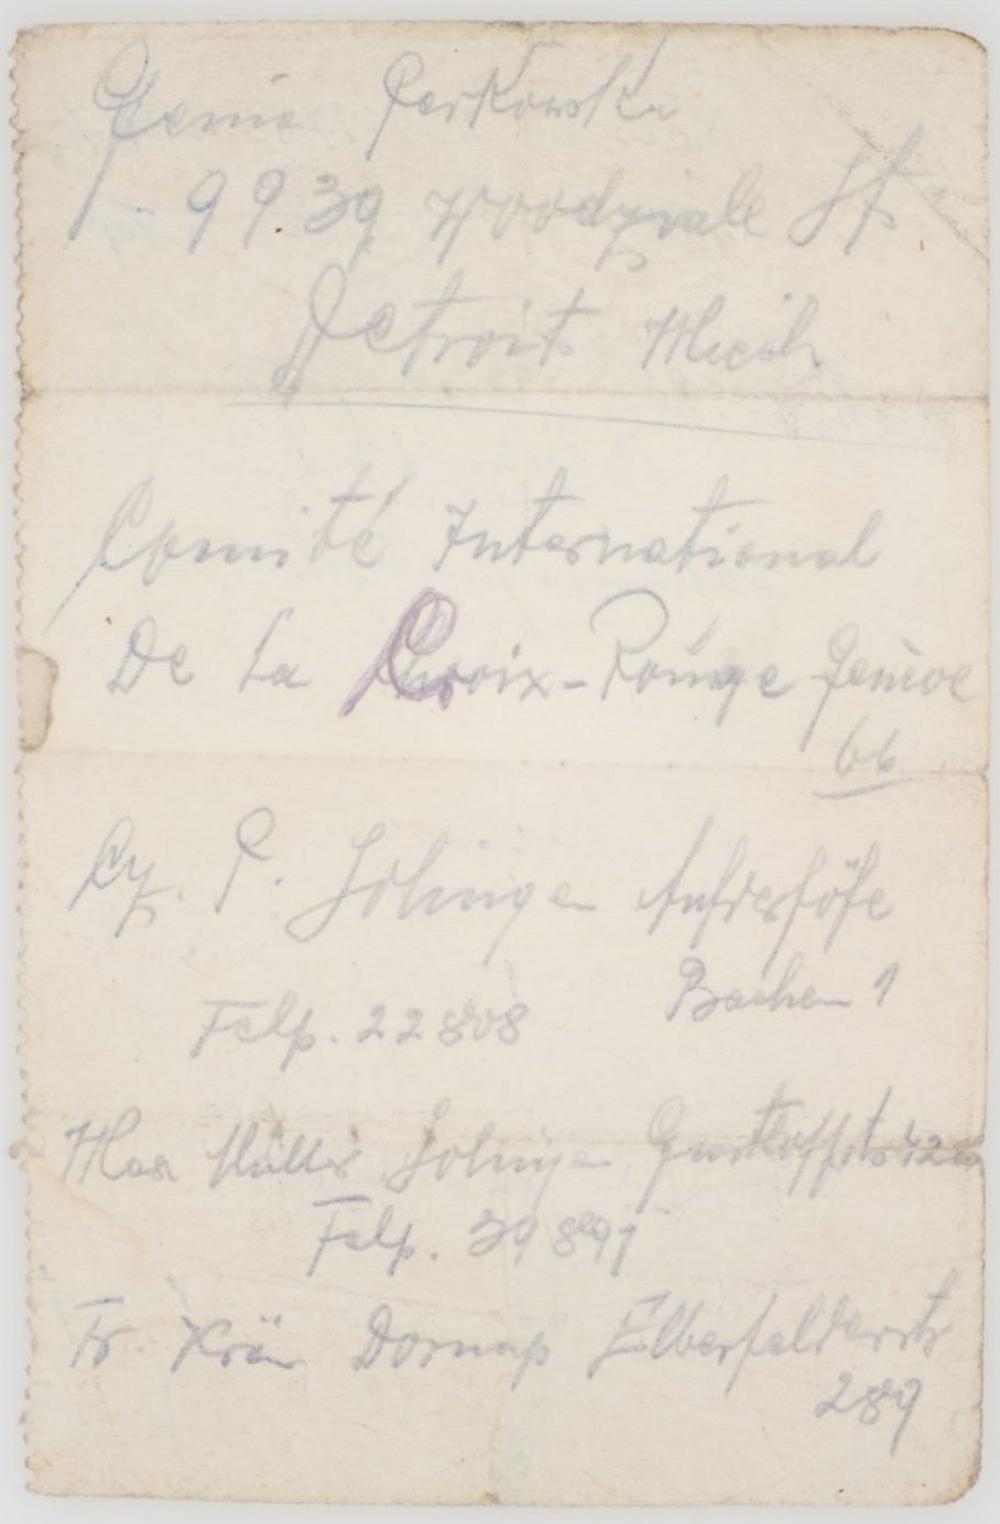 Genia Perkowska
9939 Woodziale St.
Detroit Mich
Comité International
De La Croix-Rouge Genève
66
Cy. P. Solingen Aufderhöfe
Bachen 1
Felp. 22808
Max Müller Solingen Gustloffstr
Felp. 39891
Fr. Dornap Elberfelderstr
289